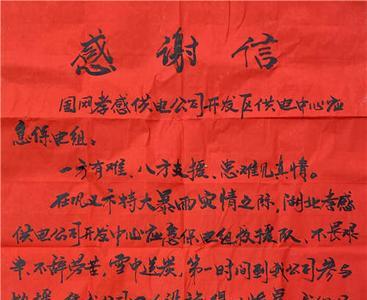 感谢信
国网孝感供电公司开发区供电中心应
急保电组:
一方有难、八方支援、患难见真情。
在巩义市特大暴雨灾情之际,湖北孝感
供电公司开发中心应急保电组救援队、不畏艰
辛,不辞劳苦,雪中送炭,第一时间到我公司参与